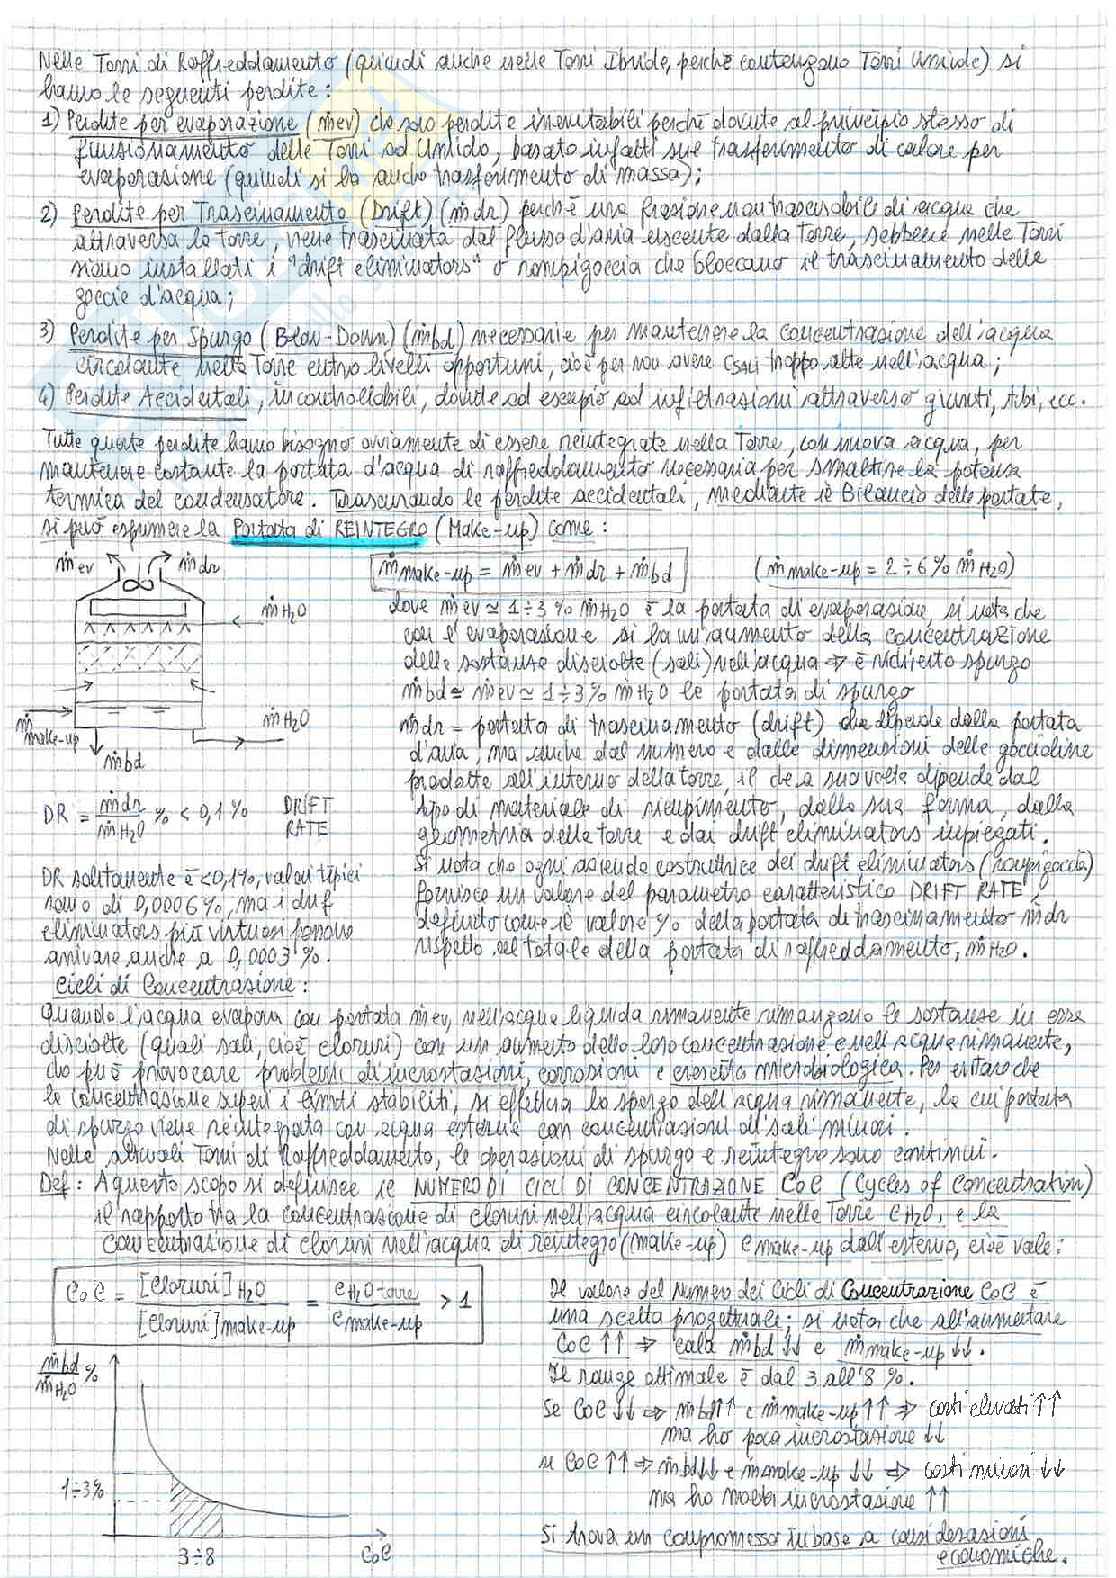 Nelle Torri di Raffreddamento (quindi anche nelle Torri Ibride, perchè contengono Torri Umide) si
hanno le seguenti perdite:
1) Perdite per evaporazione (ṁev) che sono perdite inevitabili perchè dovute al principio stesso di
funzionamento delle Torri ad Umido, basato infatti sul trasferimento di calore per
evaporazione (quindi si ha anche trasferimento di massa);
2) Perdite per Trascinamento (Drift) (ṁdr) perchè una frazione non trascurabile di acqua che
attraversa la torre, viene trascinata dal flusso d'aria uscente dalla Torre, sebbene nelle Torri
siano installati i "drift eliminators" o rompigoccia che bloccano il trascinamento delle
goccie d'acqua;
3) Perdite per Spurgo (Blow-Down) (ṁbd) necessarie per mantenere la concentrazione dell'acqua
circolante nella Torre entro livelli opportuni, cioè per non avere csali troppo alte nell'acqua;
4) Perdite Accidentali, incontrollabili, dovute ad esempio ad infiltrazioni attraverso giunti, tubi, ecc.
Tutte queste perdite hanno bisogno ovviamente di essere reintegrate nella Torre, con nuova acqua, per
mantenere costante la portata d'acqua di raffreddamento necessaria per smaltire la potenza
termica del condensatore. Trascurando le perdite accidentali, mediante il Bilancio delle portate,
si può esprimere la Portata di REINTEGRO (Make-up) come:
ṁev ṁdr
ṁH2O
ṁH2O
ṁmake-up
ṁbd
ṁmake-up = ṁev + ṁdr + ṁbd (ṁmake-up = 2÷6% ṁH2O)
dove ṁev ≃ 1÷3% ṁH2O è la portata di evaporazione, si nota che
con l'evaporazione si ha un aumento della concentrazione
delle sostanze disciolte (sali) nell'acqua ⇒ è richiesto spurgo
ṁbd ≃ ṁev ≃ 1÷3% ṁH2O la portata di spurgo
ṁdr = portata di trascinamento (drift) che dipende dalla portata
d'aria, ma anche dal numero e dalle dimensioni delle goccioline
prodotte all'interno della torre, il che a sua volta dipende dal
tipo di materiale di riempimento, dalla sua forma, dalla
geometria della torre e dai drift eliminators impiegati.
Si nota che ogni azienda costruttrice dei drift eliminators (rompigoccia)
fornisce un valore del parametro caratteristico DRIFT RATE,
definito come il valore % della portata di trascinamento ṁdr
rispetto al totale della portata di raffreddamento, ṁH2O.
DR = ṁdr/ṁH2O % < 0,1% DRIFT
RATE
DR solitamente è <0,1%, valori tipici
sono di 0,0006%, ma i drif
eliminators più virtuosi fanno
arrivare anche a 0,0003%.
Cicli di Concentrazione:
Quando l'acqua evapora con portata ṁev, nell'acqua liquida rimanente rimangono le sostanze in essa
disciolte (quali sali, cioè cloruri) con un aumento della loro concentrazione nell'acqua rimanente,
che può provocare problemi di incrostazioni, corrosioni e crescita microbiologica. Per evitare che
la concentrazione superi i limiti stabiliti, si effettua lo spurgo dell'acqua rimanente, la cui portata
di spurgo viene reintegrata con acqua esterna con concentrazioni di sali minori.
Nelle attuali Torri di Raffreddamento, le operazioni di spurgo e reintegro sono continui.
Def: A questo scopo si definisce il NUMERO DI CICLI DI CONCENTRAZIONE CoC (Cycles of Concentration)
il rapporto tra la concentrazione di cloruri nell'acqua circolante nelle Torre cH2O, e la
concentrazione di cloruri nell'acqua di reintegro (make-up) cmake-up dall'esterno, cioè vale:
CoC = [Cloruri]H2O / [Cloruri]make-up = cH2O-torre / cmake-up > 1
Il valore del numero dei Cicli di Concentrazione CoC è
una scelta progettuale; si nota che all'aumentare
CoC ↑↑ ⇒ cala ṁbd ↓↓ e ṁmake-up ↓↓.
Il range ottimale è dal 3 all'8 %.
Se CoC ↓↓ ⇒ ṁbd ↑↑ e ṁmake-up ↑↑ ⇒ costi elevati ↑↑
ma ho poca incrostazione ↓↓
se CoC ↑↑ ⇒ ṁbd ↓↓ e ṁmake-up ↓↓ ⇒ costi minori ↓↓
ma ho molta incrostazione ↑↑
Si trova un compromesso in base a considerazioni
economiche.
ṁbd/ṁH2O %
1÷3%
3÷8 CoC